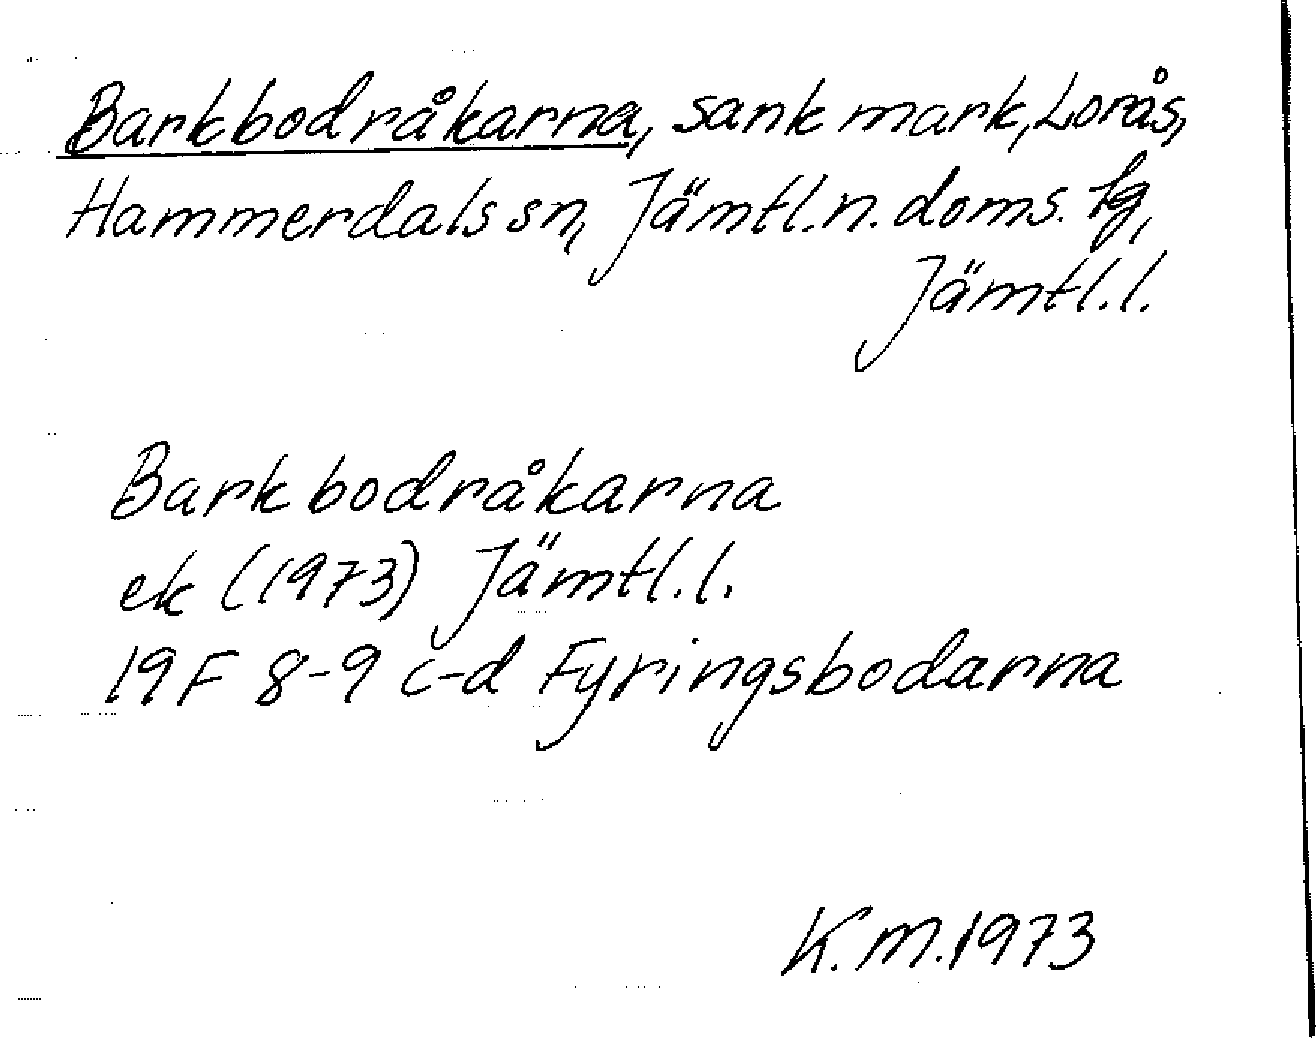 Barkbodråkarna, sank mark, Lorås,
Hammerdals sn, Jämtl. n. doms. tg,
Jämtl. l.
Barkbodråkarna
ek (1973) Jämtl. l.
19F 8-9 c-d Fyringsbodarna
K.M. 1973